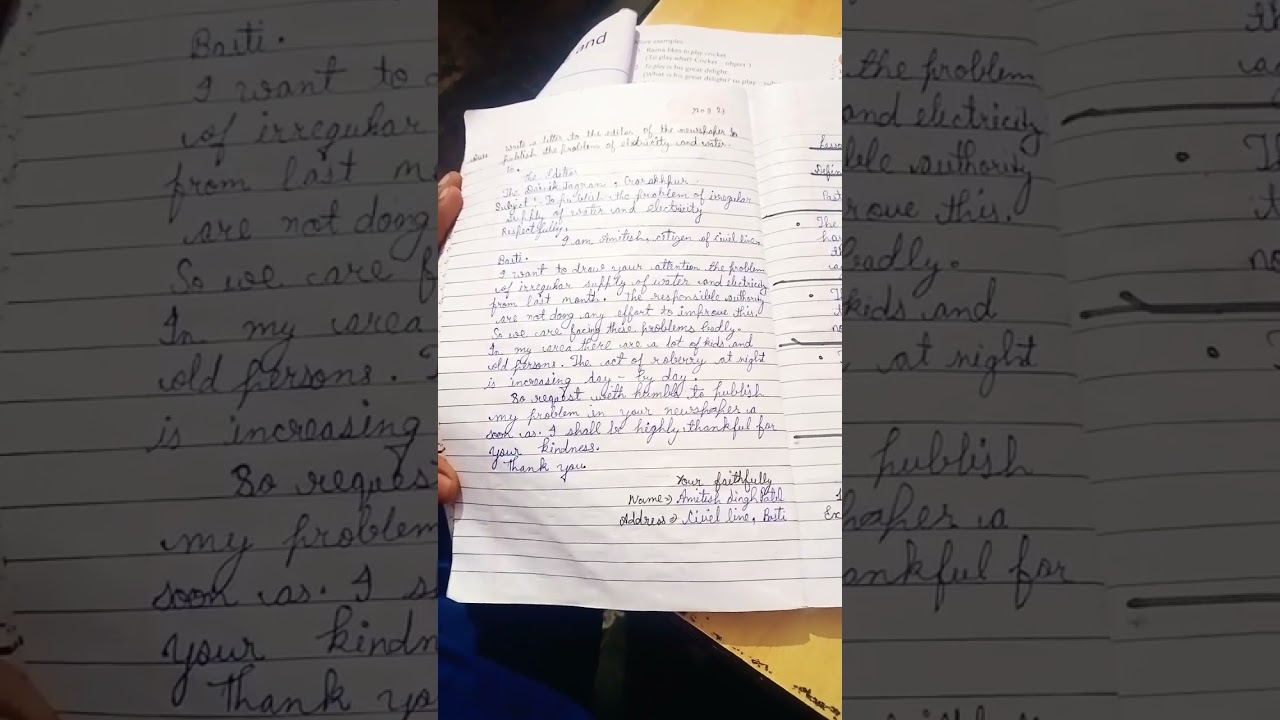 and
more examples
Rama likes to play cricket
(To play what? Cricket - object)
To play is his great delight
(What is his great delight? to play - sub
write a letter to the editor of the newspaper to
publish the problem of electricity and water.
To,
The Editor
The Dainik Jagran, Gorakhpur.
Subject: To publish the problem of irregular
supply of water and electricity
Respectfully,
I am Amitesh, citizen of civil line,
Basti.
I want to draw your attention the problem
of irregular supply of water and electricity
from last month. The responsible authority
are not dong any effort to improve this.
So we are facing these problems badly.
In my area there are a lot of kids and
old persons. The act of roberry at night
is increasing day - by day.
So reqest with humble to publish
my problem in your newspaper a
soon as. I shall be highly thankful for
your kindness.
Thank you
Your faithfully
Name → Amitesh Singh Patel
Address → Civil line, Basti